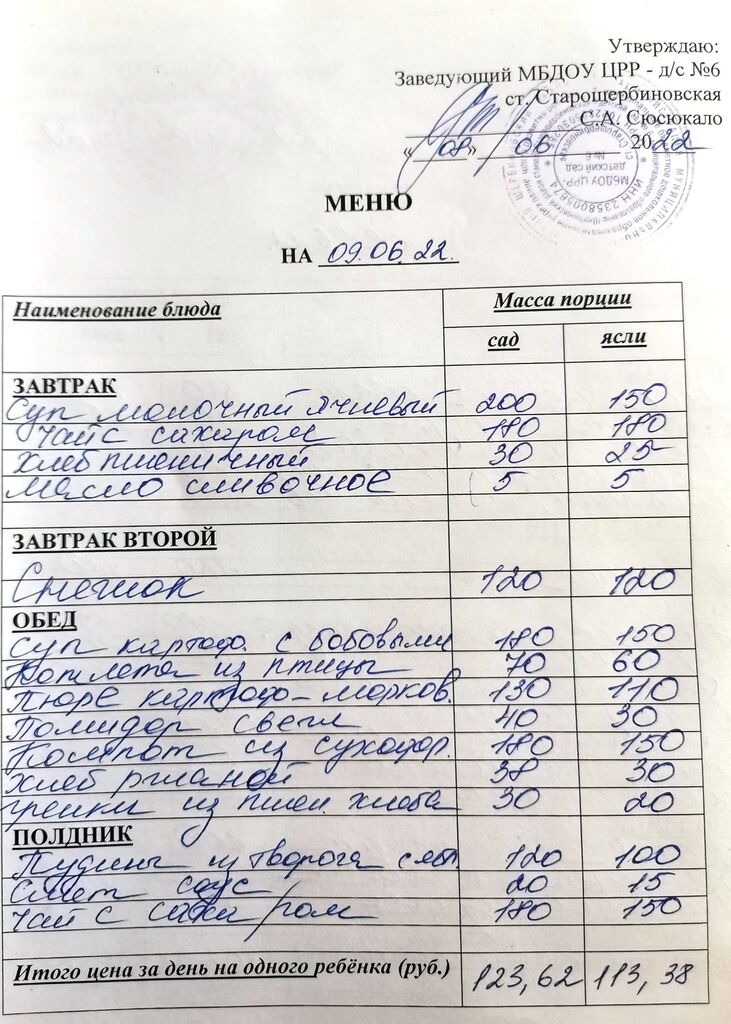 Утверждаю:
Заведующий МБДОУ ЦРР - д/с №6
ст. Старощербиновская
С.А. Сюсюкало
«08» 06 2022
МБДОУ ЦРР-
детский сад
№ 6
ИНН 2358005674
МЕНЮ
НА 09.06.22.
Наименование блюда Масса порции
сад ясли
ЗАВТРАК
Суп молочный ячневый 200 150
Чай с сахаром 180 180
Хлеб пшеничный 30 25
Масло сливочное 5 5
ЗАВТРАК ВТОРОЙ
Снежок 120 120
ОБЕД
Суп картоф. с бобовыми 180 150
Котлета из птицы 70 60
Пюре картофо-морков. 130 110
Помидор свеж 40 30
Компот из сухофр. 180 150
Хлеб ржаной 38 30
Гренки из пшен. хлеба 30 20
ПОЛДНИК
Пудинг из творога с ябл. 120 100
Смет соус 20 15
Чай с сахаром 180 150
Итого цена за день на одного ребёнка (руб.) 123,62 113,38